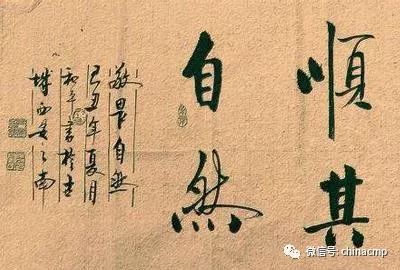 順其
自然
敬畏自然
己丑年夏月
和平書於古
城西安之南
微信号: chinacmp